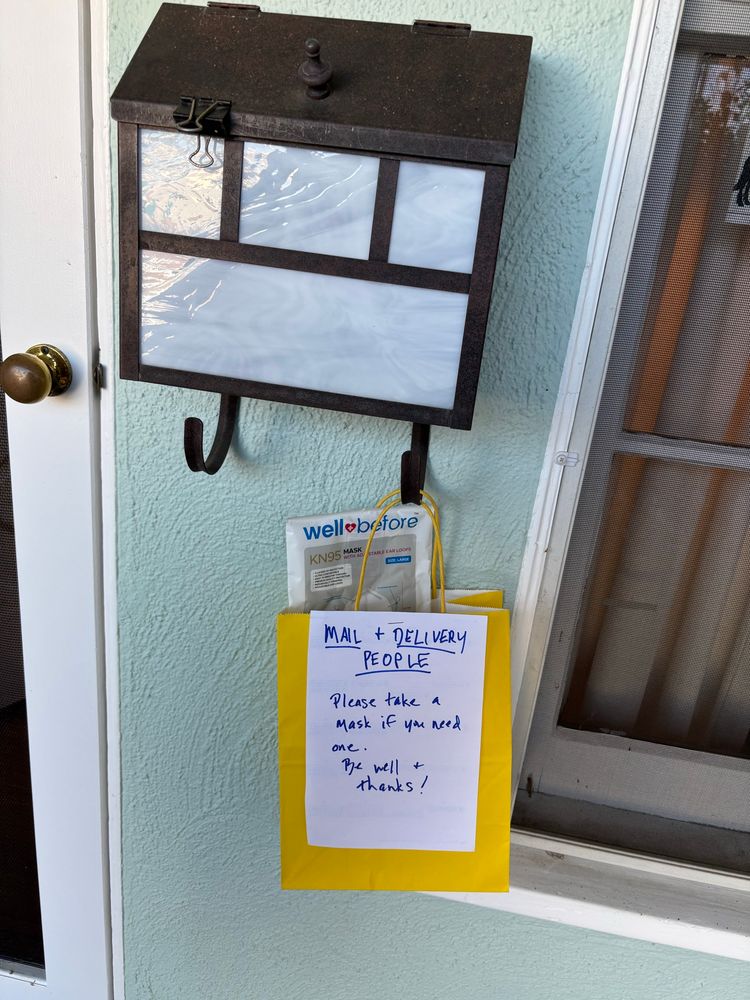 well before
KN95 MASK
WITH ADJUSTABLE EAR LOOPS
SIZE: LARGE
MAIL + DELIVERY
PEOPLE
Please take a
Mask if you need
one.
Be well +
thanks!